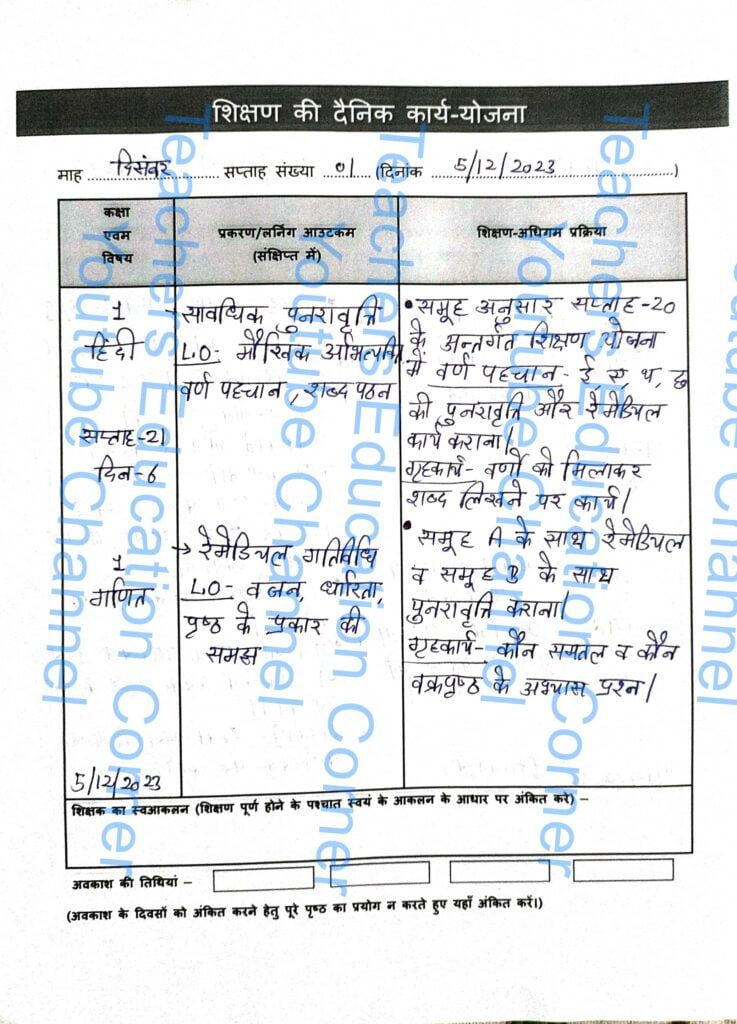 शिक्षण की दैनिक कार्य-योजना
माह दिसंबर सप्ताह संख्या 01 (दिनांक 5/12/2023)
कक्षा
एवम
विषय
प्रकरण/लर्निंग आउटकम
(संक्षिप्त में)
शिक्षण-अधिगम प्रक्रिया
1
हिंदी
सप्ताह-21
दिन-6
→ सावधिक पुनरावृत्ति
L.O- मौखिक अभिव्यक्ति
वर्ण पहचान, शब्द पठन
• समूह अनुसार सप्ताह-20
के अन्तर्गत शिक्षण योजना
में वर्ण पहचान- ई, ए, थ, छ
की पुनरावृत्ति और रेमेडियल
कार्य कराना।
गृहकार्य- वर्णों को मिलाकर
शब्द लिखने पर कार्य।
1
गणित
→ रेमेडियल गतिविधि
L.O- वजन, धारिता,
पृष्ठ के प्रकार की
समझ
• समूह A के साथ रेमेडियल
व समूह B के साथ
पुनरावृत्ति कराना।
गृहकार्य- कौन समतल व कौन
वक्रपृष्ठ के अभ्यास प्रश्न।
5/12/2023
शिक्षक का स्वआकलन (शिक्षण पूर्ण होने के पश्चात स्वयं के आकलन के आधार पर अंकित करे) –
अवकाश की तिथियां –
(अवकाश के दिवसों को अंकित करने हेतु पूरे पृष्ठ का प्रयोग न करते हुए यहाँ अंकित करें।)
Teachers Education Corner
Youtube Channel
Teachers Education Corner
Youtube Channel
Teachers Education Corner
Youtube Channel